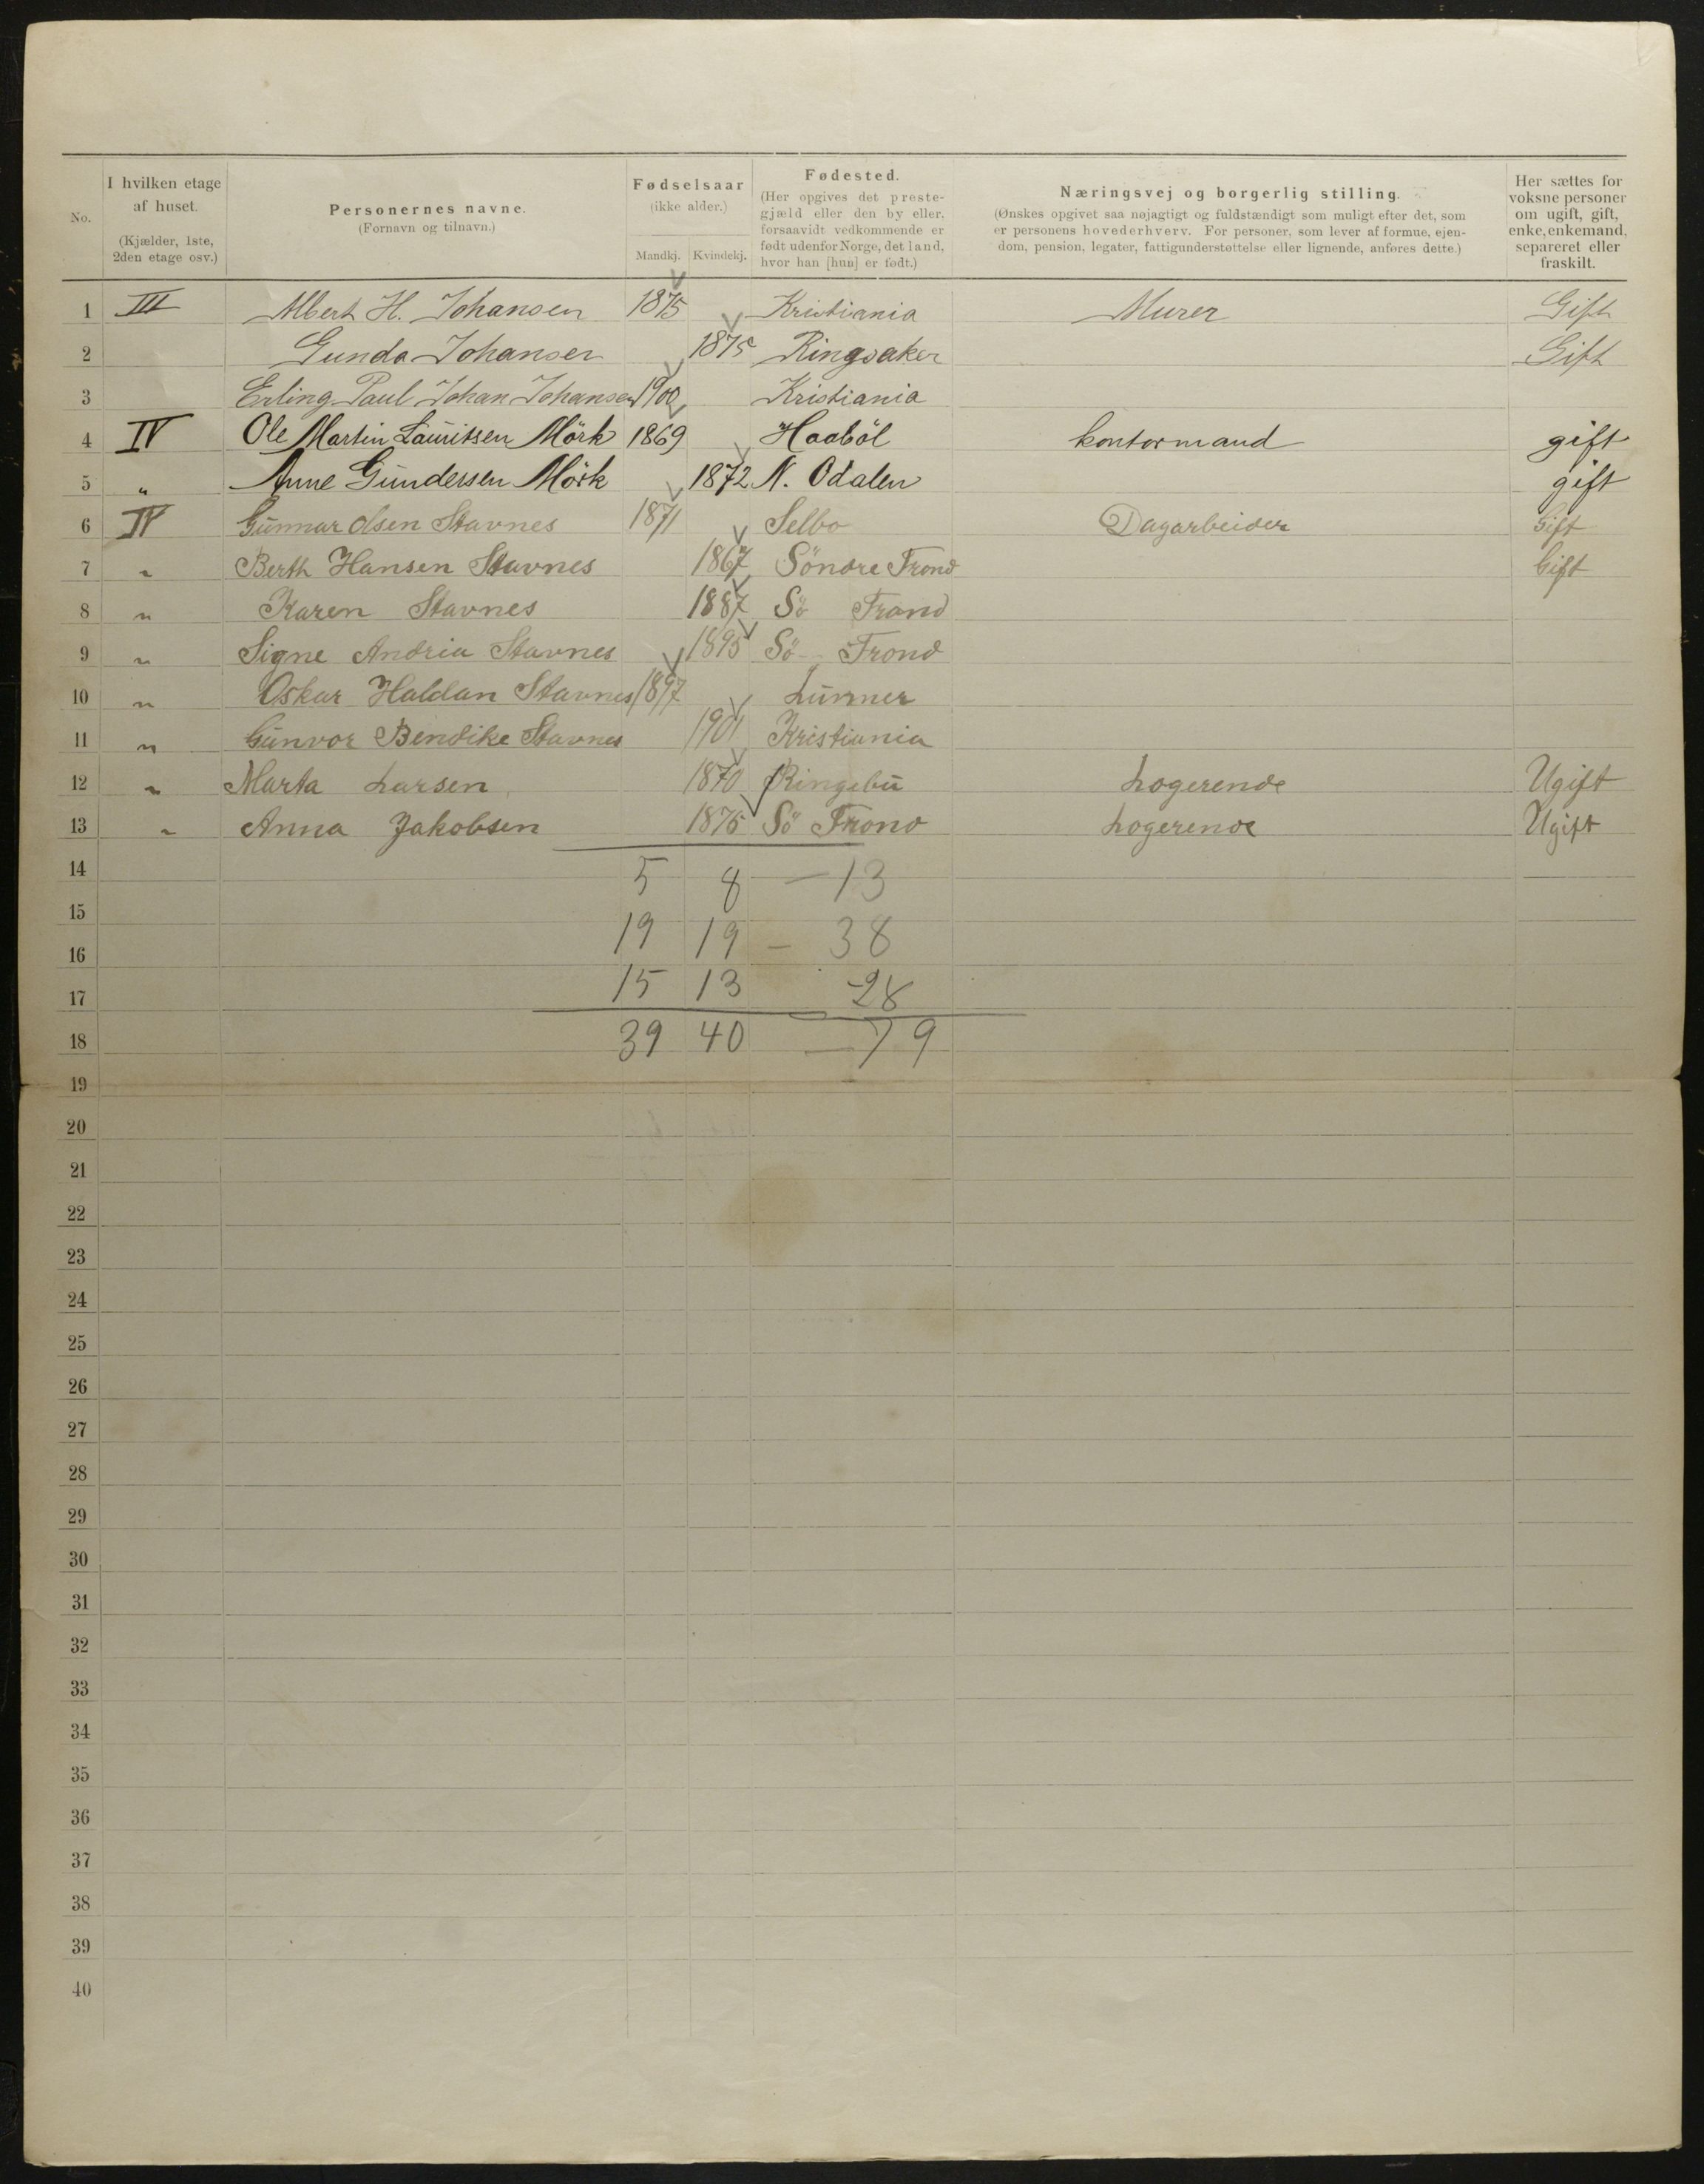 No.
I hvilken etage af huset. (Kjælder, 1ste, 2den etage osv.)
Personernes navne. (Fornavn og tilnavn.)
Fødselsaar (ikke alder.) Mandkj. Kvindekj.
Fødested. (Her opgives det prestegjæld eller den by eller, forsaavidt vedkommende er født udenfor Norge, det land, hvor han [hun] er født.)
Næringsvej og borgerlig stilling. (Ønskes opgivet saa nøjagtigt og fuldstændigt som muligt efter det, som er personens hovederhverv. For personer, som lever af formue, ejendom, pension, legater, fattigunderstøttelse eller lignende, anføres dette.)
Her sættes for voksne personer om ugift, gift, enke, enkemand, separeret eller fraskilt.
1 III Albert H. Johansen 1875 Kristiania Murer Gift
2 Gunda Johansen 1875 Ringsaker Gift
3 Erling Paul Johan Johansen 1900 Kristiania
4 IV Ole Martin Lauritsen Mörk 1869 Haaböl kontormand gift
5 " Anne Gundersen Mörk 1872 N. Odalen gift
6 IV Gunnar Olsen Stavnes 1871 Selbo Dagarbeider Gift
7 " Berth Hansen Stavnes 1867 Söndre Frond Gift
8 " Karen Stavnes 1887 Sö Frond
9 " Signe Andria Stavnes 1895 Sö Frond
10 " Oskar Haldan Stavnes 1897 Lunner
11 " Gunvor Bendike Stavnes 1901 Kristiania
12 " Marta Larsen 1870 Ringebu Logerende Ugift
13 " Anna Jakobsen 1875 Sö Frond Logerende Ugift
14 5 8 — 13
15
16 19 19 — 38
17 15 13 - 28
18 39 40 — 79
19
20
21
22
23
24
25
26
27
28
29
30
31
32
33
34
35
36
37
38
39
40